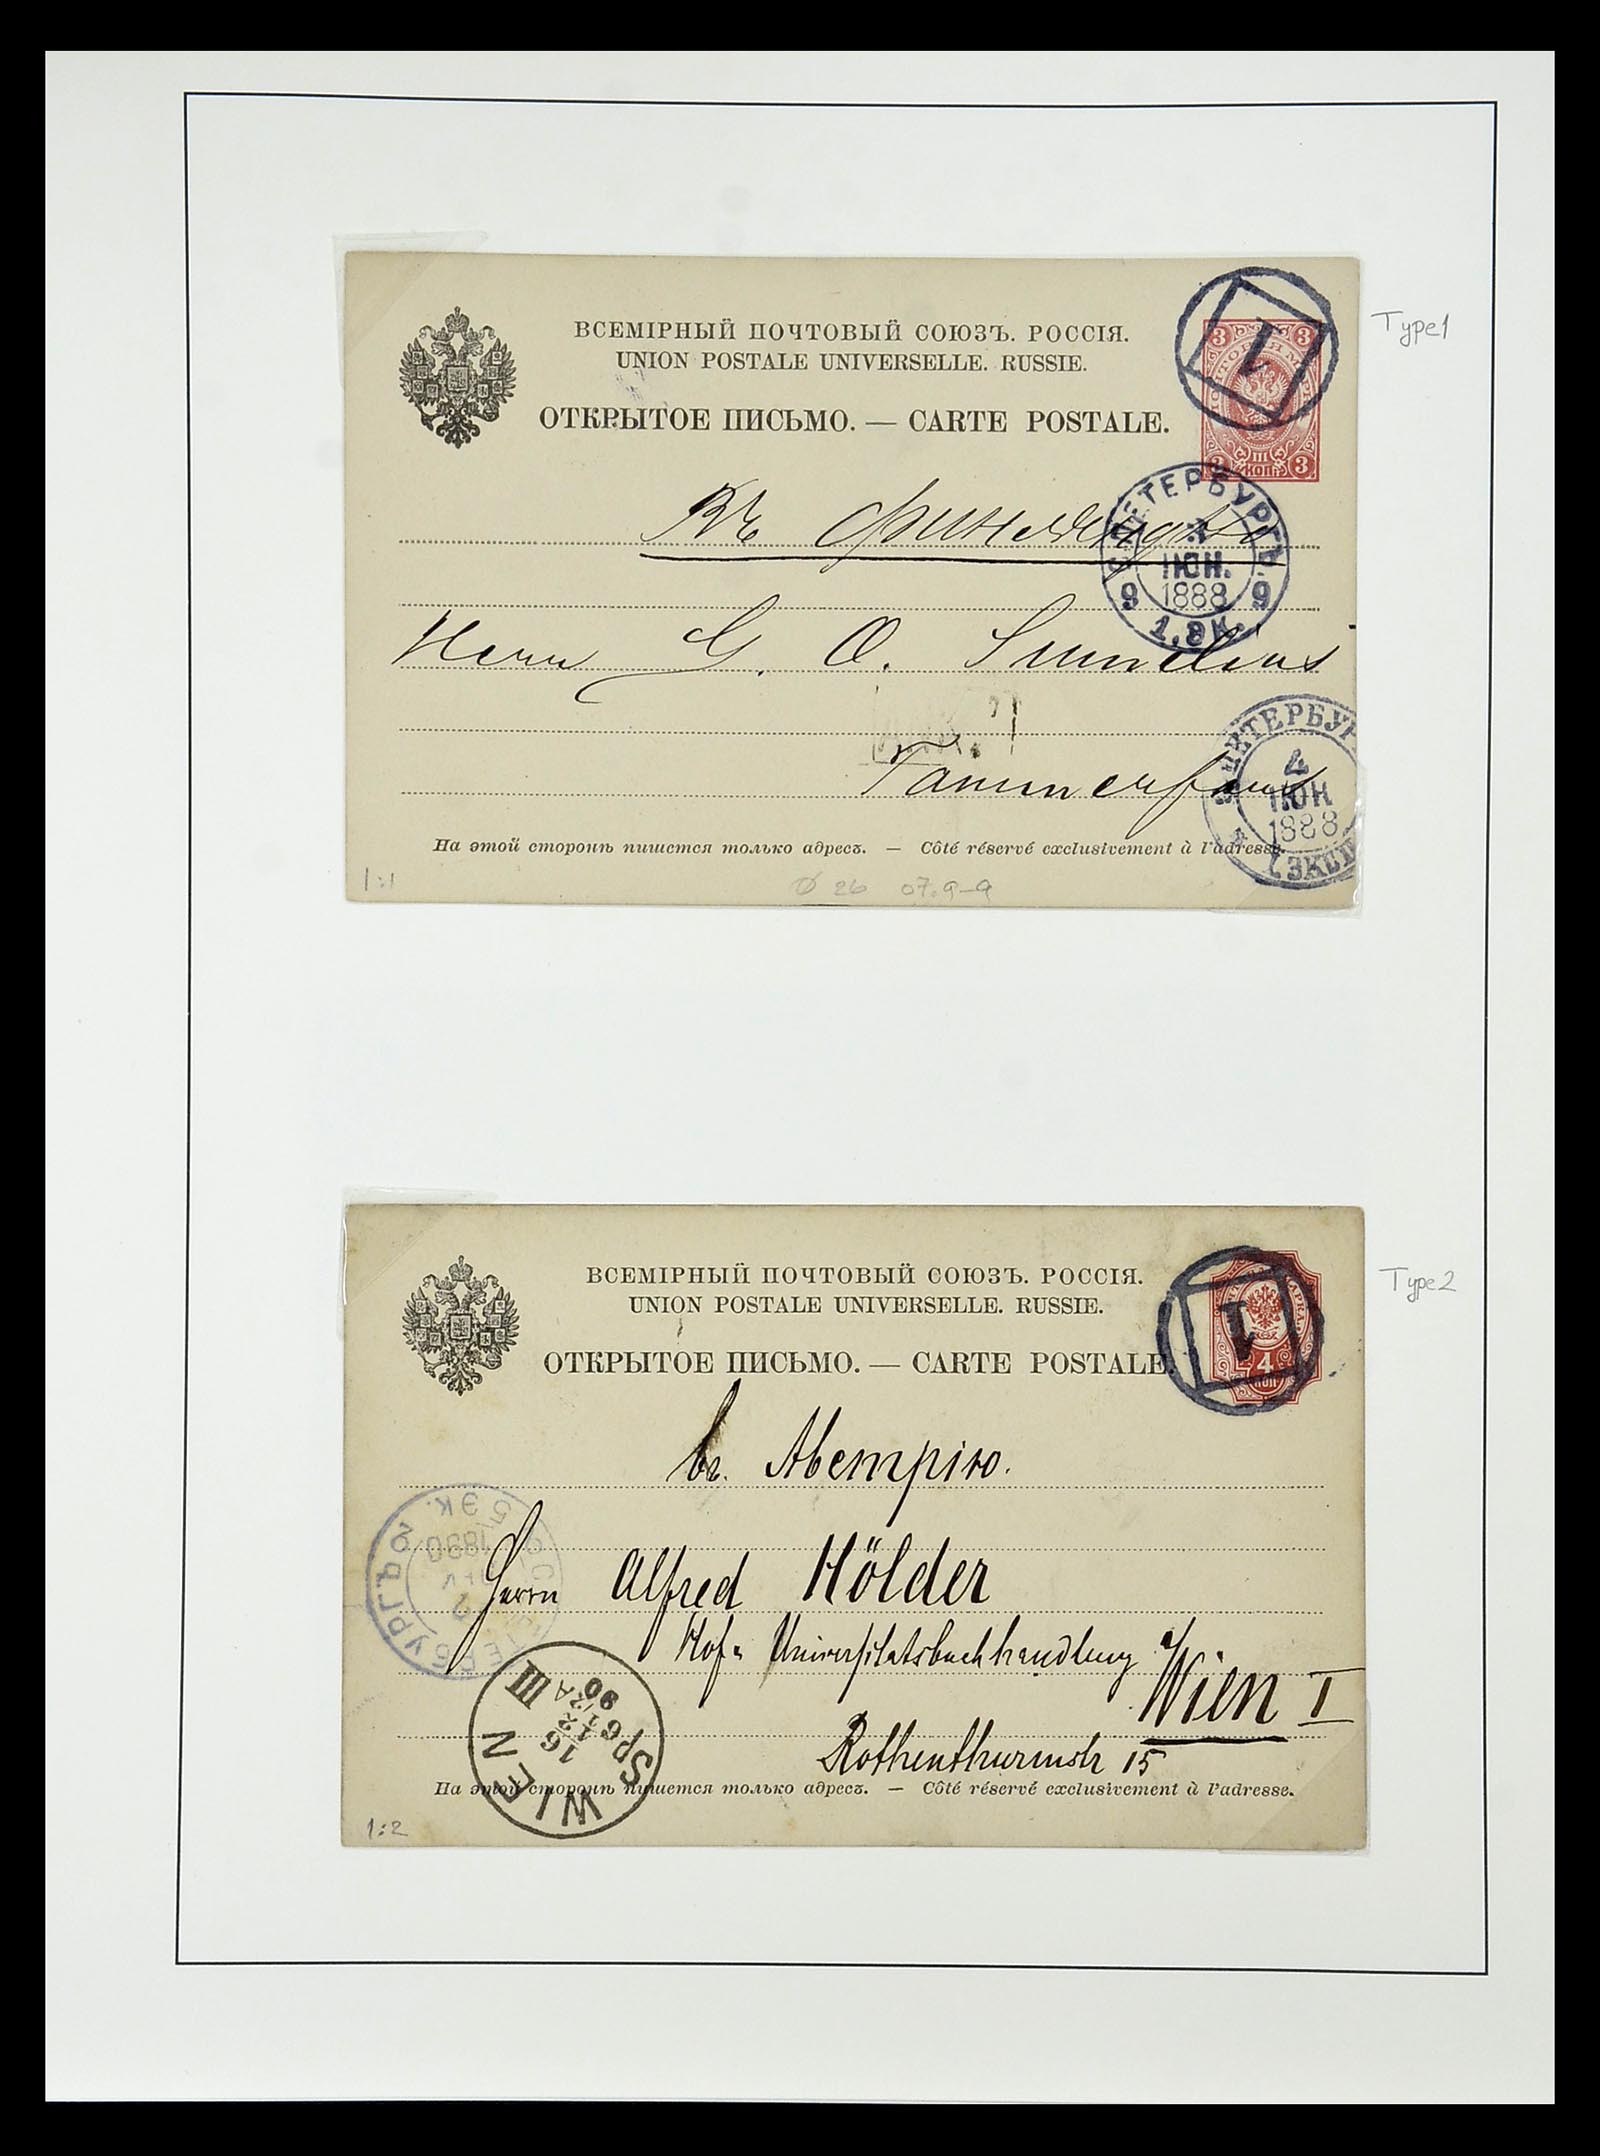 ВСЕМІРНЫЙ ПОЧТОВЫЙ СОЮЗЪ. РОССІЯ.
UNION POSTALE UNIVERSELLE. RUSSIE.
ОТКРЫТОЕ ПИСЬМО. — CARTE POSTALE.
1
3 3
III
КОП.
3 3
Type1
Въ Финляндію
С.ПЕТЕРБУРГЪ
ІЮН.
1888
9 9
1.ЭК.
Herrn G. O. Sumelius
Tammerfors
С.ПЕТЕРБУР
4
ІЮН
1888
1 ЭКСП
На этой сторонѣ пишется только адресъ. — Côté réservé exclusivement à l'adresse.
1:1
Ø 26 07.9-9
ВСЕМІРНЫЙ ПОЧТОВЫЙ СОЮЗЪ. РОССІЯ.
UNION POSTALE UNIVERSELLE. RUSSIE.
ОТКРЫТОЕ ПИСЬМО. — CARTE POSTALE.
1
4
КОП
Type2
С.ПЕТЕРБУРГЪ 2
2
1890
5 ЭК.
Herrn Alfred Hölder
Hof- Universitätsbuchhandlung
Wien I
Rothenthurmstr 15
WIEN
16
12
90
III
На этой сторонѣ пишется только адресъ. — Côté réservé exclusivement à l'adresse.
1:2